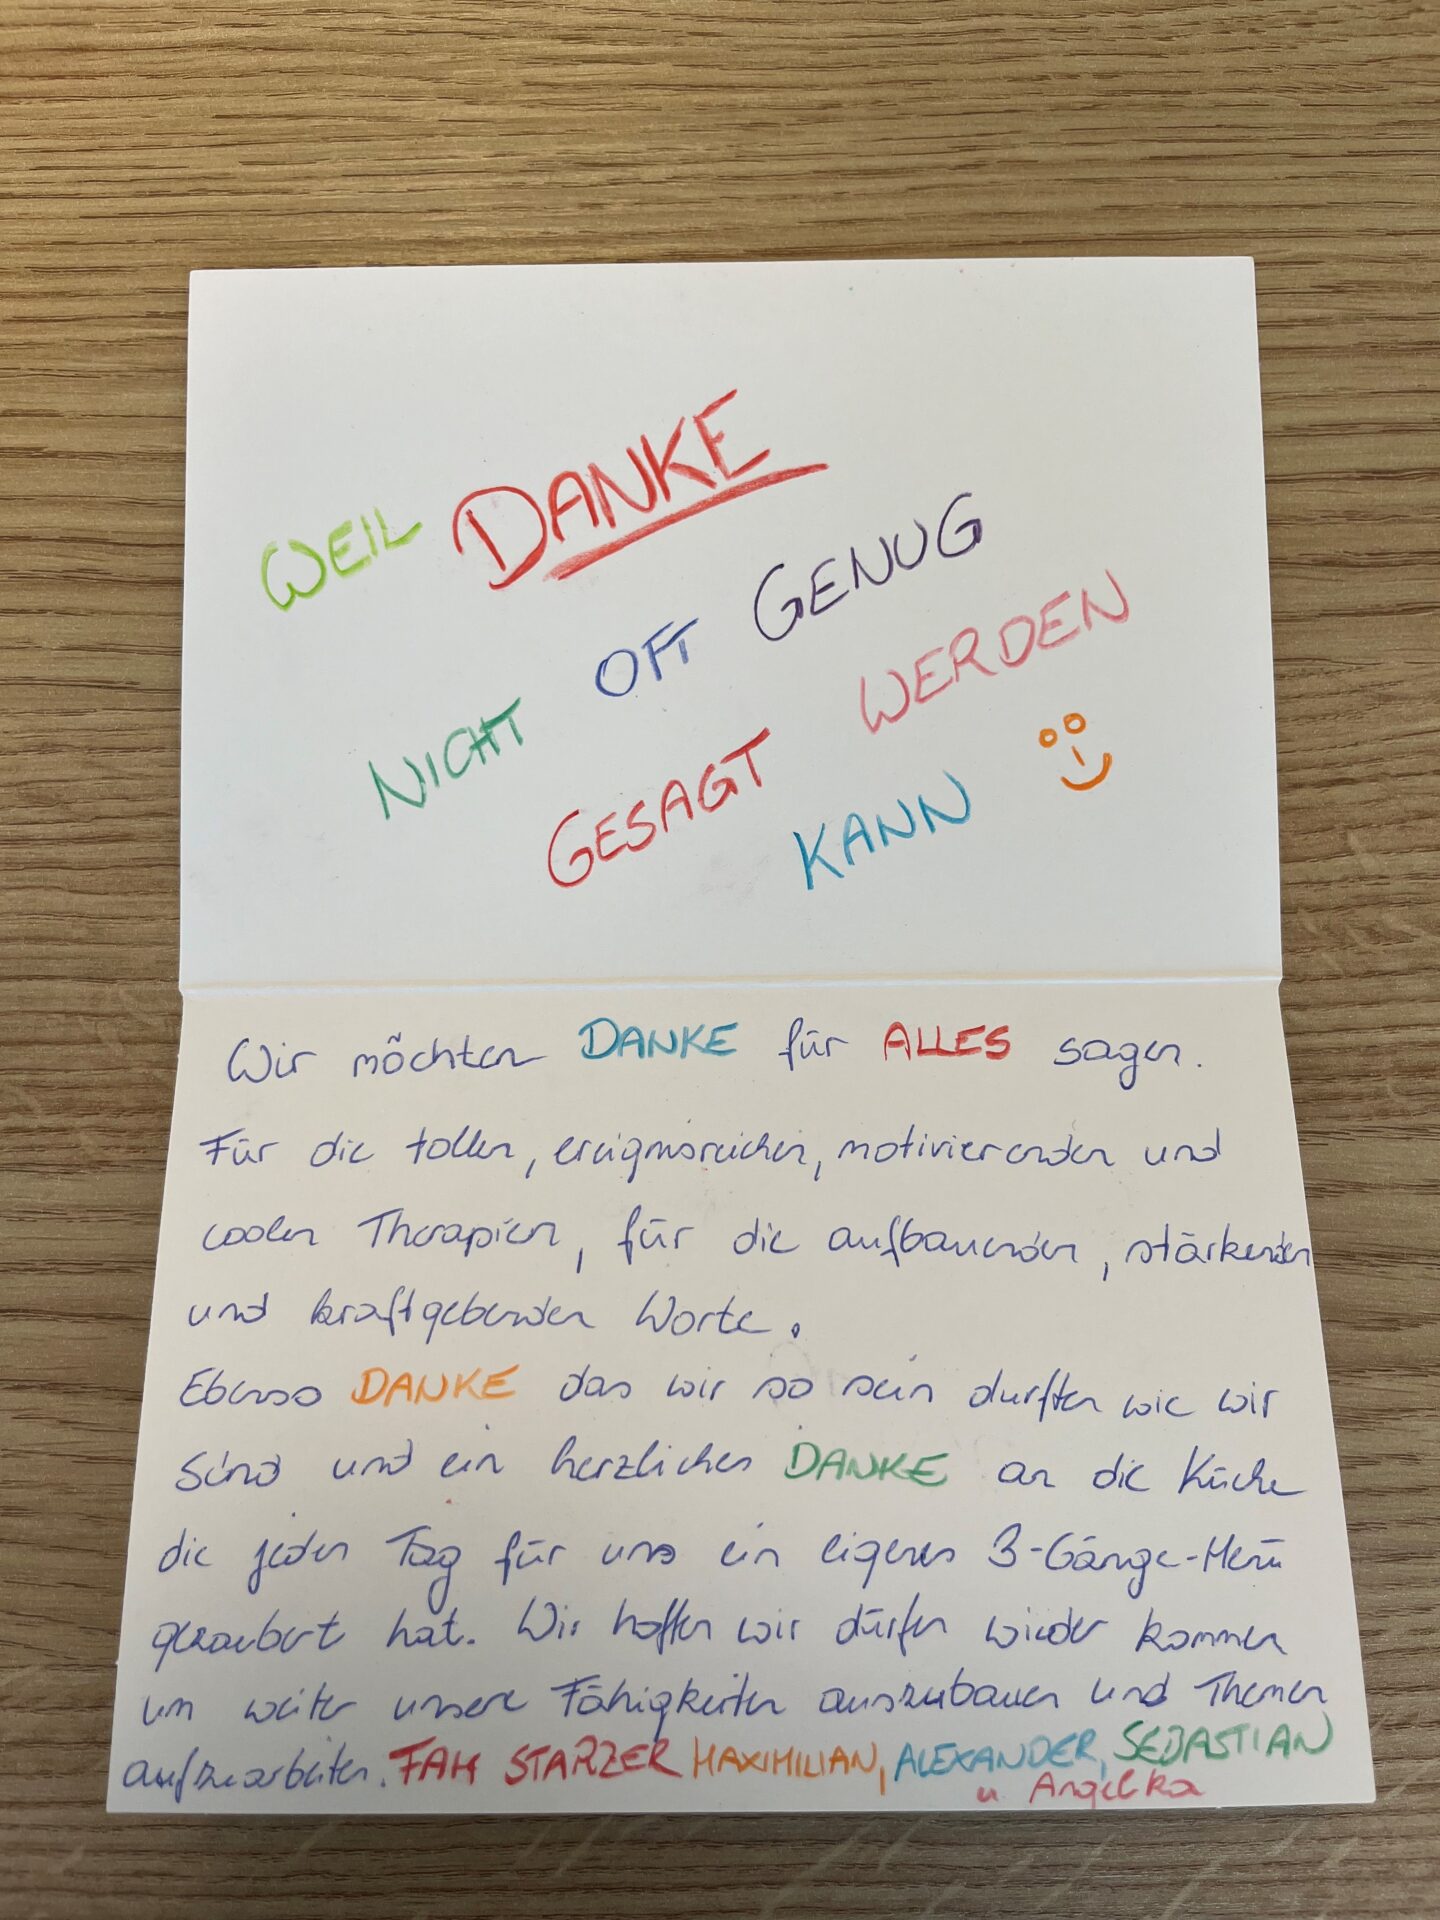 WEIL DANKE
NICHT OFT GENUG
GESAGT WERDEN
KANN
Wir möchten DANKE für ALLES sagen.
Für die tollen, ereignisreichen, motivierenden und
coolen Therapien, für die aufbauenden, stärkenden
und kraftgebenden Worte.
Ebenso DANKE das wir so sein durften wie wir
sind und ein herzliches DANKE an die Küche
die jeden Tag für uns ein eigenes 3-Gänge-Menü
gezaubert hat. Wir hoffen wir dürfen wieder kommen
um weiter unsere Fähigkeiten auszubauen und Themen
aufzuarbeiten. FAM STARZER MAXIMILIAN, ALEXANDER, SEBASTIAN
u Angelika